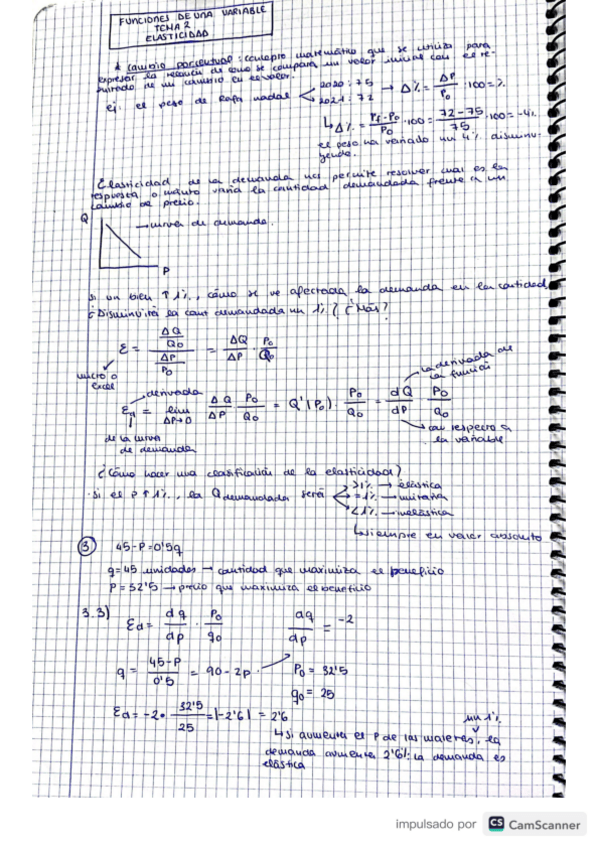 FUNCIONES DE UNA VARIABLE
TEMA 2
ELASTICIDAD
cambio porcentual: concepto matemático que se utiliza para
expresar la relación de como se compara un valor inicial con el re-
sultado de un cambio en el valor.
ej. el peso de Rafa nadal
2020: 75
2021: 72
→ Δ% = ΔP / P₀ · 100 = %
↳ Δ% = (P₁ - P₀) / P₀ · 100 = (72 - 75) / 75 · 100 = -4%
el peso ha variado un 4% disminu-
yendo.
Elasticidad de la demanda nos permite resolver cual es la
respuesta o cuánto varía la cantidad demandada frente a un
cambio de precio.
Q
→ curva de demanda.
P
si un bien ↑ 1%, cómo se ve afectada la demanda en la cantidad,
¿Disminuirá la cant demandada un 1%? ¿Más?
Ɛ = (ΔQ / Q₀) / (ΔP / P₀) = ΔQ / ΔP · P₀ / Q₀
micro o
excel
derivada
la derivada de
la función
Ɛd = lim ΔP→0 ΔQ / ΔP · P₀ / Q₀ = Q'(P₀) · P₀ / Q₀ = dQ / dP · P₀ / Q₀
de la curva
de demanda
con respecto a
la variable
¿Cómo hacer una clasificación de la elasticidad?
· si el P ↑ 1%, la Q demandada será
>1% → elástica
=1% → unitaria
<1% → inelástica
↳ siempre en valor absoluto
③ 45-P=0'5q
q=45 unidades → cantidad que maximiza el beneficio
P=32'5 → precio que maximiza el beneficio
3.3) Ɛd = dq / dp · P₀ / q₀
dq / dp = -2
q = (45-P) / 0'5 = 90-2P
P₀ = 32'5
q₀ = 25
Ɛd = -2 · 32'5 / 25 = |-2'6| = 2'6
un 1%
↳ si aumenta el P de las maletas, la
demanda aumenta 2'6%: la demanda es
elástica
impulsado por CS CamScanner